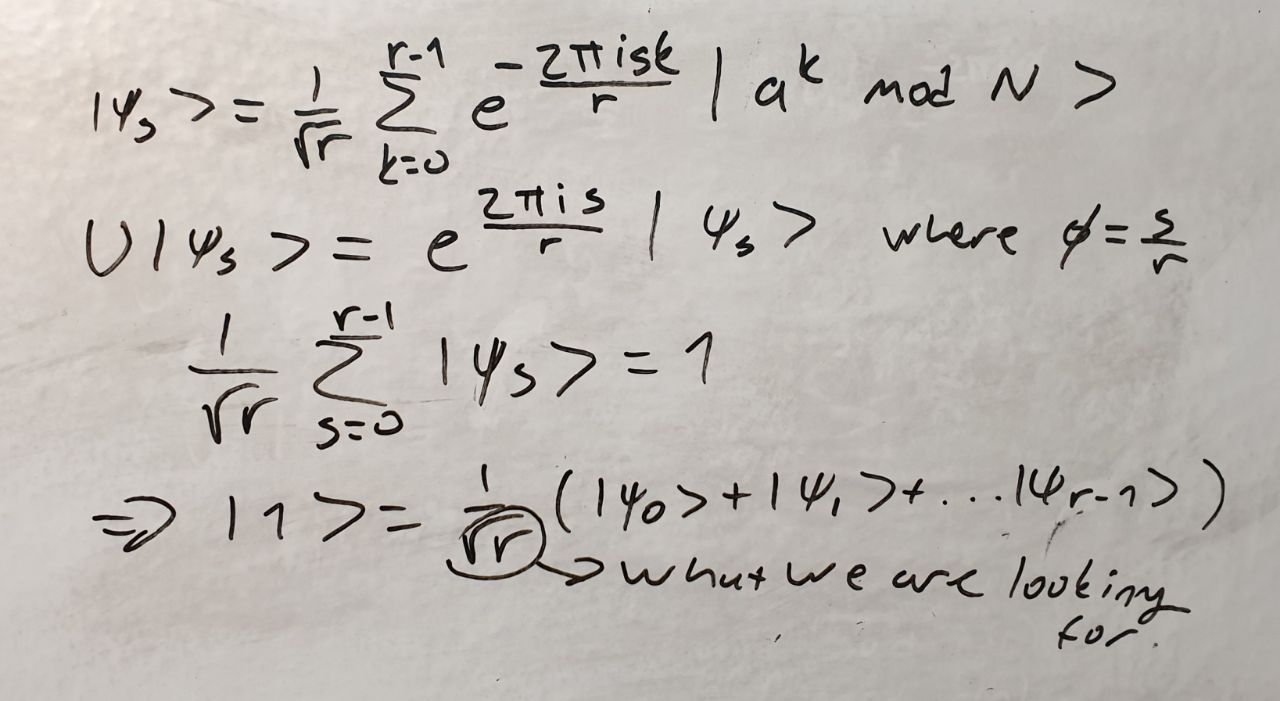 |ψₛ> = 1/√r ∑_{k=0}^{r-1} e^{-2πisk/r} | a^k mod N >
U|ψₛ> = e^{2πis/r} | ψₛ> where ϕ = s/r
1/√r ∑_{s=0}^{r-1} |ψₛ> = 1
⇒ |1> = 1/√r (|ψ₀> + |ψ₁> + ... |ψ_{r-1}>)
→ what we are looking
for.